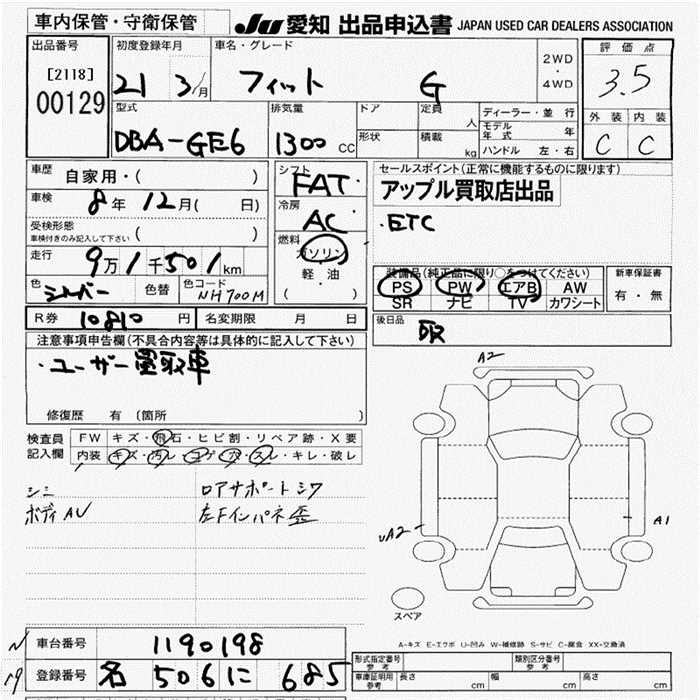 車内保管・守衛保管
JU 愛知 出品申込書 JAPAN USED CAR DEALERS ASSOCIATION
出品番号 初度登録年月 車名・グレード 2WD・4WD 評価点
[2118] 00129 21年 3/月 フィット G 3.5
型式 排気量 ドア 定員 人 ディーラー・並行 外装 内装
DBA-GE6 1300 CC 形状 積載 kg モデル年式 年 C C
ハンドル 左・右
車歴 自家用・( ) シフト FAT・ セールスポイント(正常に機能するものに限ります)
車検 8年 12月( 日) 冷房 AC・ アップル買取店出品
受検形態 車検付きのみ記入して下さい ( ) 燃料 ガソリン ・ETC
走行 9万1千501km 軽・油 ( )
装備品(純正品に限り○をつけてください) 新車保証書
色 シルバー 色替 色コード NH700M PS PW エアB AW 有・無
SR ナビ TV カワシート
R券 10810円 名変期限 月 日 後日品 取
注意事項申告欄(不具合内容等は具体的に記入して下さい)
・ユーザー買取車
修復歴 有 (箇所 )
検査員記入欄 FW キズ・飛石・ヒビ割・リペア跡・X要
内装 キズ・汚レ・コゲ・穴・スレ・キレ・破レ
シミ ロアサポートシワ
ボディAU 左Fインパネ歪
A2
A1
UA2
スペア
A-キズ E-エクボ U-凹み W-補修跡 S-サビ C-腐食 XX-交換済
車台番号 1190198
登録番号 名 506 に 685
形式指定番号 参考 類別区分番号 参考
車庫証明用 参考 長さ cm 幅 cm 高さ cm